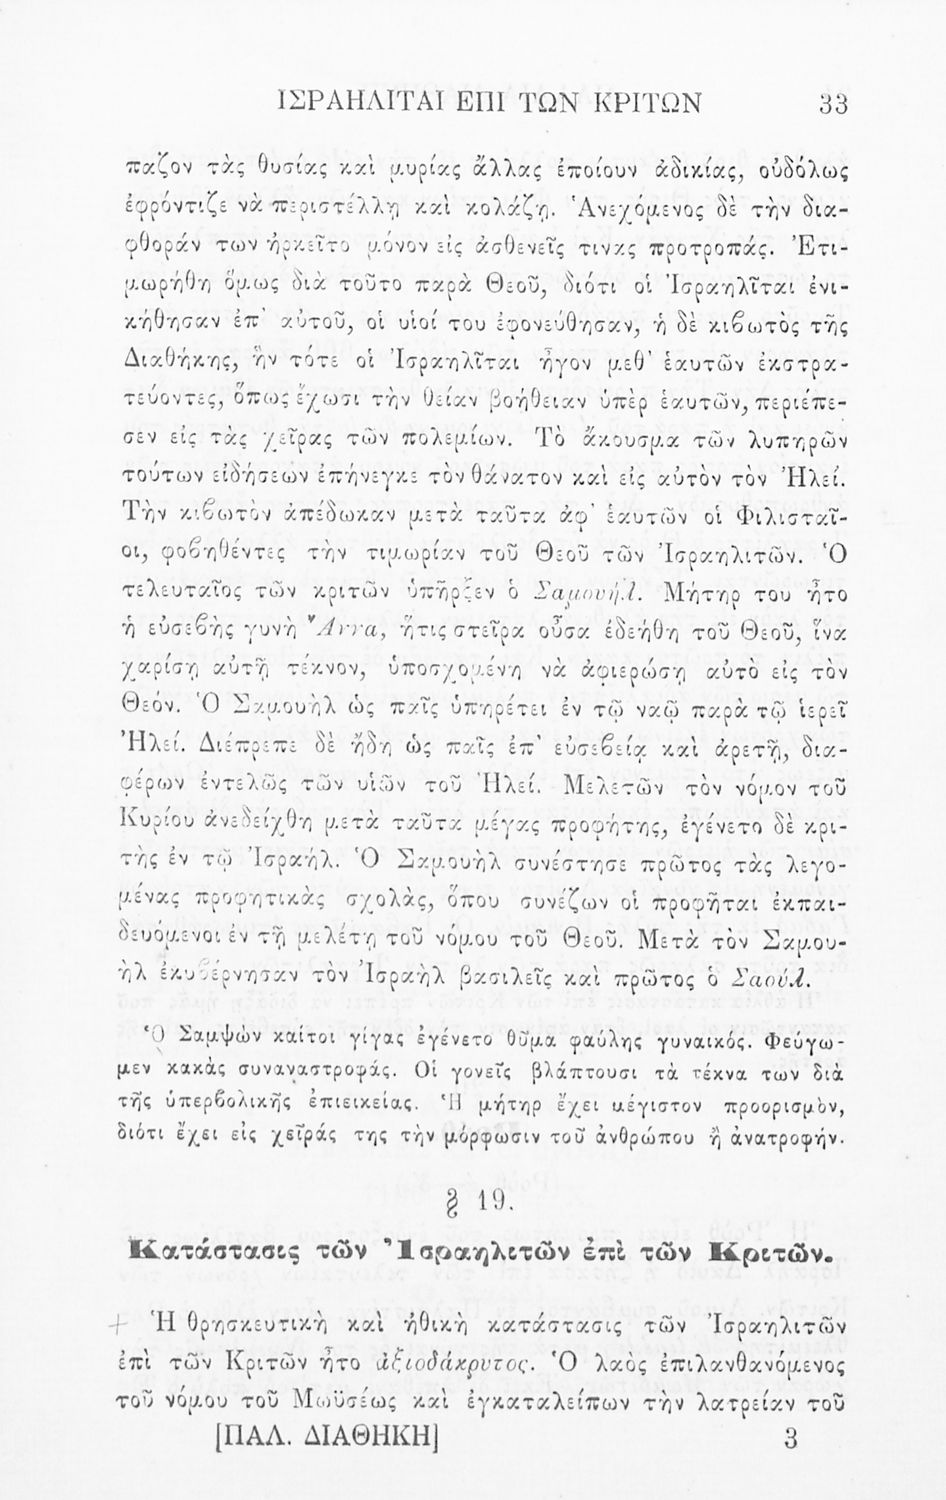 ΙΣΡΑΗΛΙΤΑΙ ΕΠΙ ΤΩΝ ΚΡΙΤΩΝ 33
παζον τὰς θυσίας καὶ μυρίας ἄλλας ἐποίουν ἀδικίας, οὐδόλως
ἐφρόντιζε νὰ περιστέλλῃ καὶ κολάζῃ. Ἀνεχόμενος δὲ τὴν δια-
φθοράν των ἠρκεῖτο μόνον εἰς ἀσθενεῖς τινας προτροπάς. Ἐτι-
μωρήθη ὅμως διὰ τοῦτο παρὰ Θεοῦ, διότι οἱ Ἰσραηλῖται ἐνι-
κήθησαν ἐπ' αὐτοῦ, οἱ υἱοί του ἐφονεύθησαν, ἡ δὲ κιβωτὸς τῆς
Διαθήκης, ἣν τότε οἱ Ἰσραηλῖται ἦγον μεθ' ἑαυτῶν ἐκστρα-
τεύοντες, ὅπως ἔχωσι τὴν θείαν βοήθειαν ὑπὲρ ἑαυτῶν, περιέπε-
σεν εἰς τὰς χεῖρας τῶν πολεμίων. Τὸ ἄκουσμα τῶν λυπηρῶν
τούτων εἰδήσεων ἐπήνεγκε τὸν θάνατον καὶ εἰς αὐτὸν τὸν Ἠλεί.
Τὴν κιβωτὸν ἀπέδωκαν μετὰ ταῦτα ἀφ' ἑαυτῶν οἱ Φιλισταῖ-
οι, φοβηθέντες τὴν τιμωρίαν τοῦ Θεοῦ τῶν Ἰσραηλιτῶν. Ὁ
τελευταῖος τῶν κριτῶν ὑπῆρξεν ὁ Σαμουήλ. Μήτηρ του ἦτο
ἡ εὐσεβὴς γυνὴ Ἄννα, ἥτις στεῖρα οὖσα ἐδεήθη τοῦ Θεοῦ, ἵνα
χαρίσῃ αὐτῇ τέκνον, ὑποσχομένη νὰ ἀφιερώσῃ αὐτὸ εἰς τὸν
Θεόν. Ὁ Σαμουὴλ ὡς παῖς ὑπηρέτει ἐν τῷ ναῷ παρὰ τῷ ἱερεῖ
Ἠλεί. Διέπρεπε δὲ ἤδη ὡς παῖς ἐπ' εὐσεβείᾳ καὶ ἀρετῇ, δια-
φέρων ἐντελῶς τῶν υἱῶν τοῦ Ἠλεί. Μελετῶν τὸν νόμον τοῦ
Κυρίου ἀνεδείχθη μετὰ ταῦτα μέγας προφήτης, ἐγένετο δὲ κρι-
τὴς ἐν τῷ Ἰσραήλ. Ὁ Σαμουὴλ συνέστησε πρῶτος τὰς λεγο-
μένας προφητικὰς σχολάς, ὅπου συνέζων οἱ προφῆται ἐκπαι-
δευόμενοι ἐν τῇ μελέτῃ τοῦ νόμου τοῦ Θεοῦ. Μετὰ τὸν Σαμου-
ὴλ ἐκυβέρνησαν τὸν Ἰσραὴλ βασιλεῖς καὶ πρῶτος ὁ Σαούλ.
Ὁ Σαμψὼν καίτοι γίγας ἐγένετο θῦμα φαύλης γυναικός. Φεύγω-
μεν κακὰς συναναστροφάς. Οἱ γονεῖς βλάπτουσι τὰ τέκνα των διὰ
τῆς ὑπερβολικῆς ἐπιεικείας. Ἡ μήτηρ ἔχει μέγιστον προορισμὸν,
διότι ἔχει εἰς χεῖράς της τὴν μόρφωσιν τοῦ ἀνθρώπου ἢ ἀνατροφήν.
§ 19.
Κατάστασις τῶν Ἰσραηλιτῶν ἐπὶ τῶν Κριτῶν.
Ἡ θρησκευτικὴ καὶ ἠθικὴ κατάστασις τῶν Ἰσραηλιτῶν
ἐπὶ τῶν Κριτῶν ἦτο ἀξιοδάκρυτος. Ὁ λαὸς ἐπιλανθανόμενος
τοῦ νόμου τοῦ Μωϋσέως καὶ ἐγκαταλείπων τὴν λατρείαν τοῦ
[ΠΑΛ. ΔΙΑΘΗΚΗ] 3